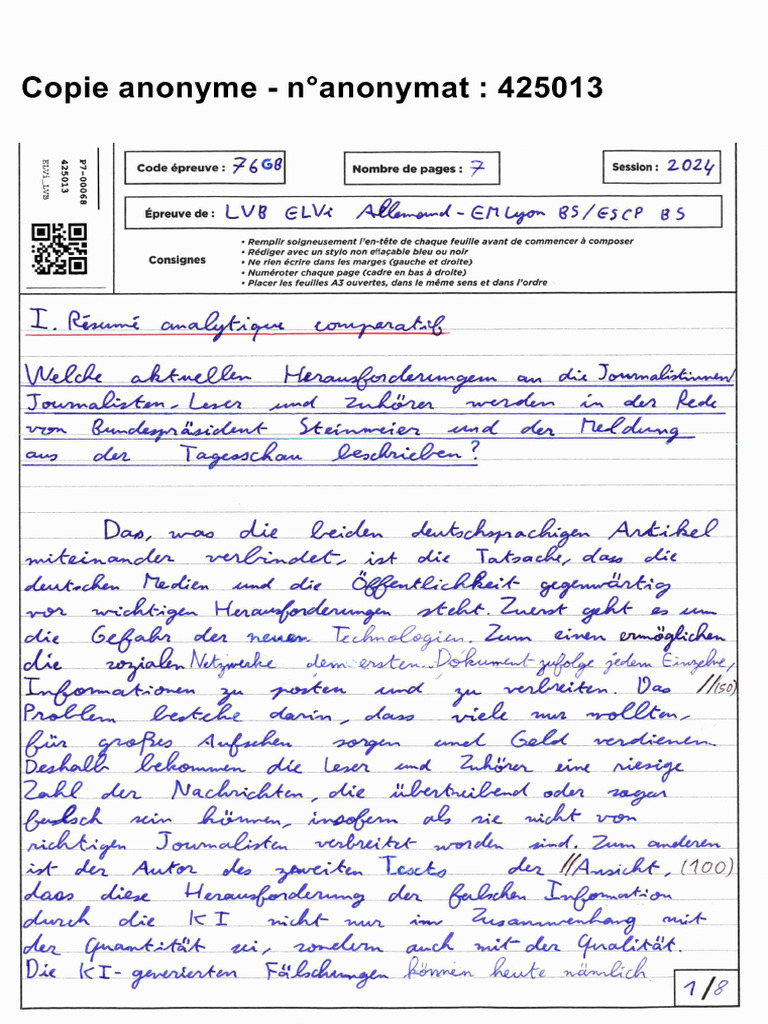 Copie anonyme - n°anonymat : 425013
P7-00068
425013
ELVi_LVB
Code épreuve : 76GB
Nombre de pages : 7
Session : 2024
Épreuve de : LVB ELVi Allemand - EMLyon BS/ESCP BS
Consignes
• Remplir soigneusement l'en-tête de chaque feuille avant de commencer à composer
• Rédiger avec un stylo non effaçable bleu ou noir
• Ne rien écrire dans les marges (gauche et droite)
• Numéroter chaque page (cadre en bas à droite)
• Placer les feuilles A3 ouvertes, dans le même sens et dans l'ordre
I. Résumé analytique comparatif
Welche aktuellen Herausforderungem an die Journalistinnen/
Journalisten, Leser und Zuhörer werden in der Rede
von Bundespräsident Steinmeier und der Meldung
aus der Tagesschau beschrieben?
Das, was die beiden deutschsprachigen Artikel
miteinander verbindet, ist die Tatsache, dass die
deutschen Medien und die Öffentlichkeit gegenwärtig
vor wichtigen Herausforderungen steht. Zuerst geht es um
die Gefahr der neuen Technologien. Zum einen ermöglichen
die sozialen Netzwerke dem ersten Dokument zufolge jedem Einzelne,
Informationen zu posten und zu verbreiten. Das //(50)
Problem bestehe darin, dass viele nur wollten,
für großes Aufsehen sorgen und Geld verdienen.
Deshalb bekommen die Leser und Zuhörer eine riesige
Zahl der Nachrichten, die übertreibend oder sogar
falsch sein können, insofern als sie nicht von
richtigen Journalisten verbreitet worden sind. Zum anderen
ist der Autor des zweiten Texts der //Ansicht, (100)
dass diese Herausforderung der falschen Information
durch die KI nicht nur im Zusammenhang mit
der Quantität sei, sondern auch mit der Qualität.
Die KI-generierten Fälschungen können heute nämlich
1/8